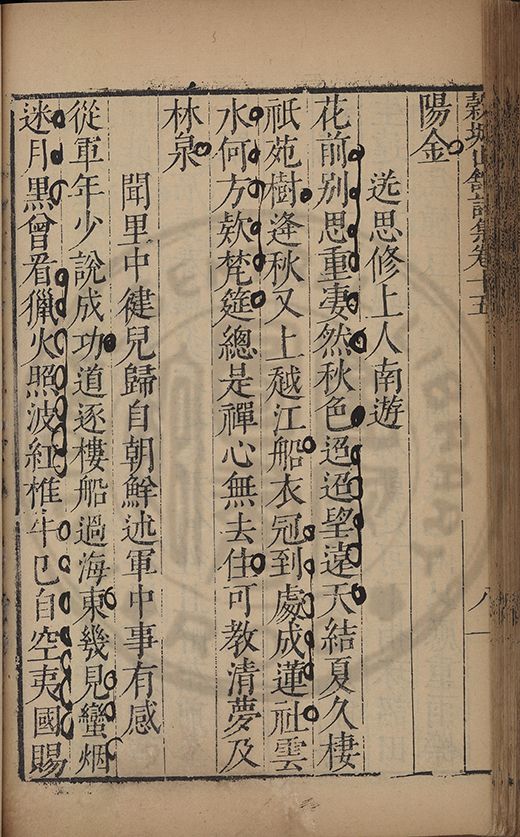 穀城山館詩集卷十五
八
陽金
送思修上人南遊
花前別思重凄然秋色迢迢望遠天結夏久棲
祇苑樹逢秋又上越江船衣冠到處成蓮社雲
水何方欵梵筵總是禪心無去住可教清夢及
林泉
聞里中健兒歸自朝鮮述軍中事有感
從軍年少說成功道逐樓船過海東幾見蠻烟
迷月黑曾看獵火照波紅椎牛已自空夷國賜